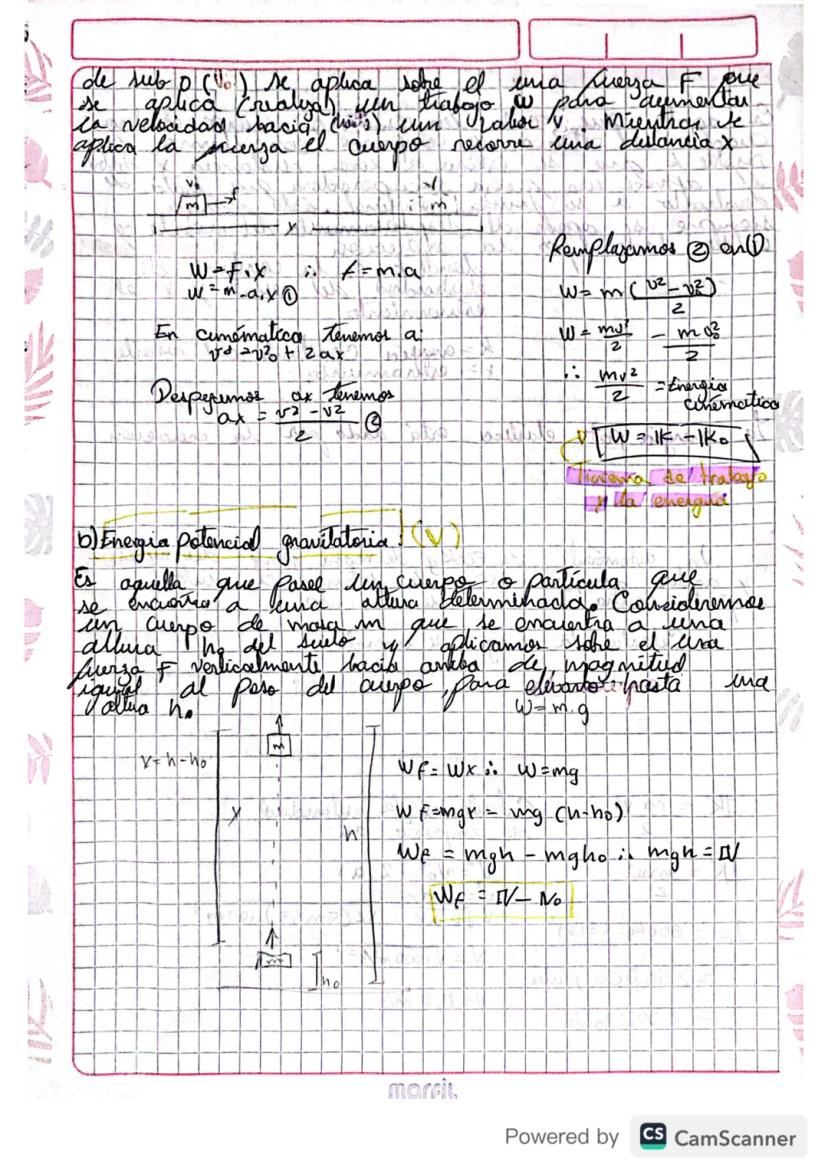 de sub 0 (v₀) se aplica sobre el una fuerza F que
se aplica (realiza) un trabajo w para aumentar
la velocidad hacia un valor v. Mientras se
aplica la fuerza el cuerpo recorre una distancia x
v₀
m
f
v
m
x
W = f.x ∴ f = m.a
W = m.a.x ①
En cinématica tenemos a:
v² = v²₀ + 2ax
Despejamos ax tenemos
ax = v² - v² / 2 ②
Remplazamos ② en ①
W = m (v² - v₀² / 2)
W = mv² / 2 - mv₀² / 2
∴ mv² / 2 = Energia
cinématica
W = K - K₀
Tiorema de trabajo
y la energia
b) Energia potencial gravitatoria: (V)
Es aquella que posee un cuerpo o partícula que
se encuentra a una altura determinada. Consideremos
un cuerpo de masa m que se encuentra a una
altura h₀ del suelo y aplicamos sobre el una
fuerza F verticalmente hacia arriba de magnitud
igual al peso del cuerpo, para elevarlo hasta una
altura h.
W = m.g
m
Y = h - h₀
y
h
m
h₀
Wf = Wx ∴ W = mg
Wf = mgx = mg (h-h₀)
Wf = mgh - mgh₀ ∴ mgh = V
Wf = V - V₀
marfil
Powered by CS CamScanner